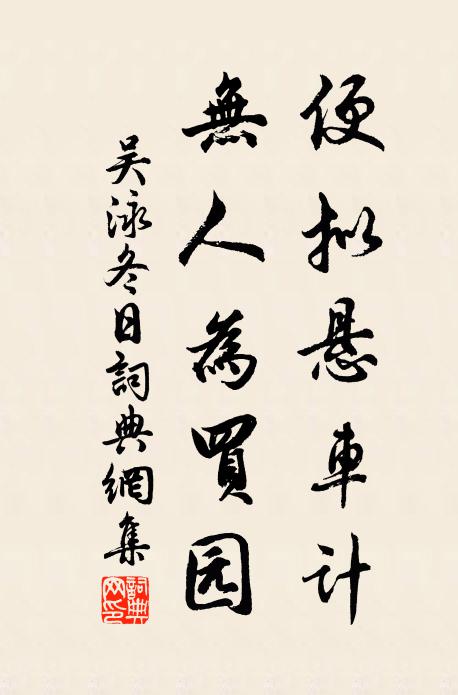 便拟悬車计
無人為買园
吴泳冬日詞典網集
詞典网印